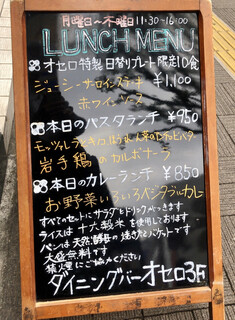 月曜日〜木曜日11:30-16:00
LUNCH MENU
オセロ特製 日替りプレート限定10食
ジューシーサーロインステーキ ¥1,100
ホワイトソース
本日のパスタランチ ¥950
モッツァレラとほうれん草の
岩手鶏のカルボナーラ
本日のカレーランチ ¥850
お野菜いろいろベンガルカレー
すべてのセットにサラダとドリンクがつきます
ライスは十六穀米を使用しております
パンは天然酵母の焼きたてバケットです
大盛無料です
禁煙にご協力ください
ダイニングバーオセロ3F